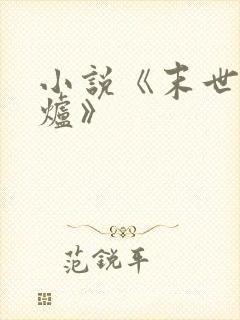 小說《末世
爐》
范銳平